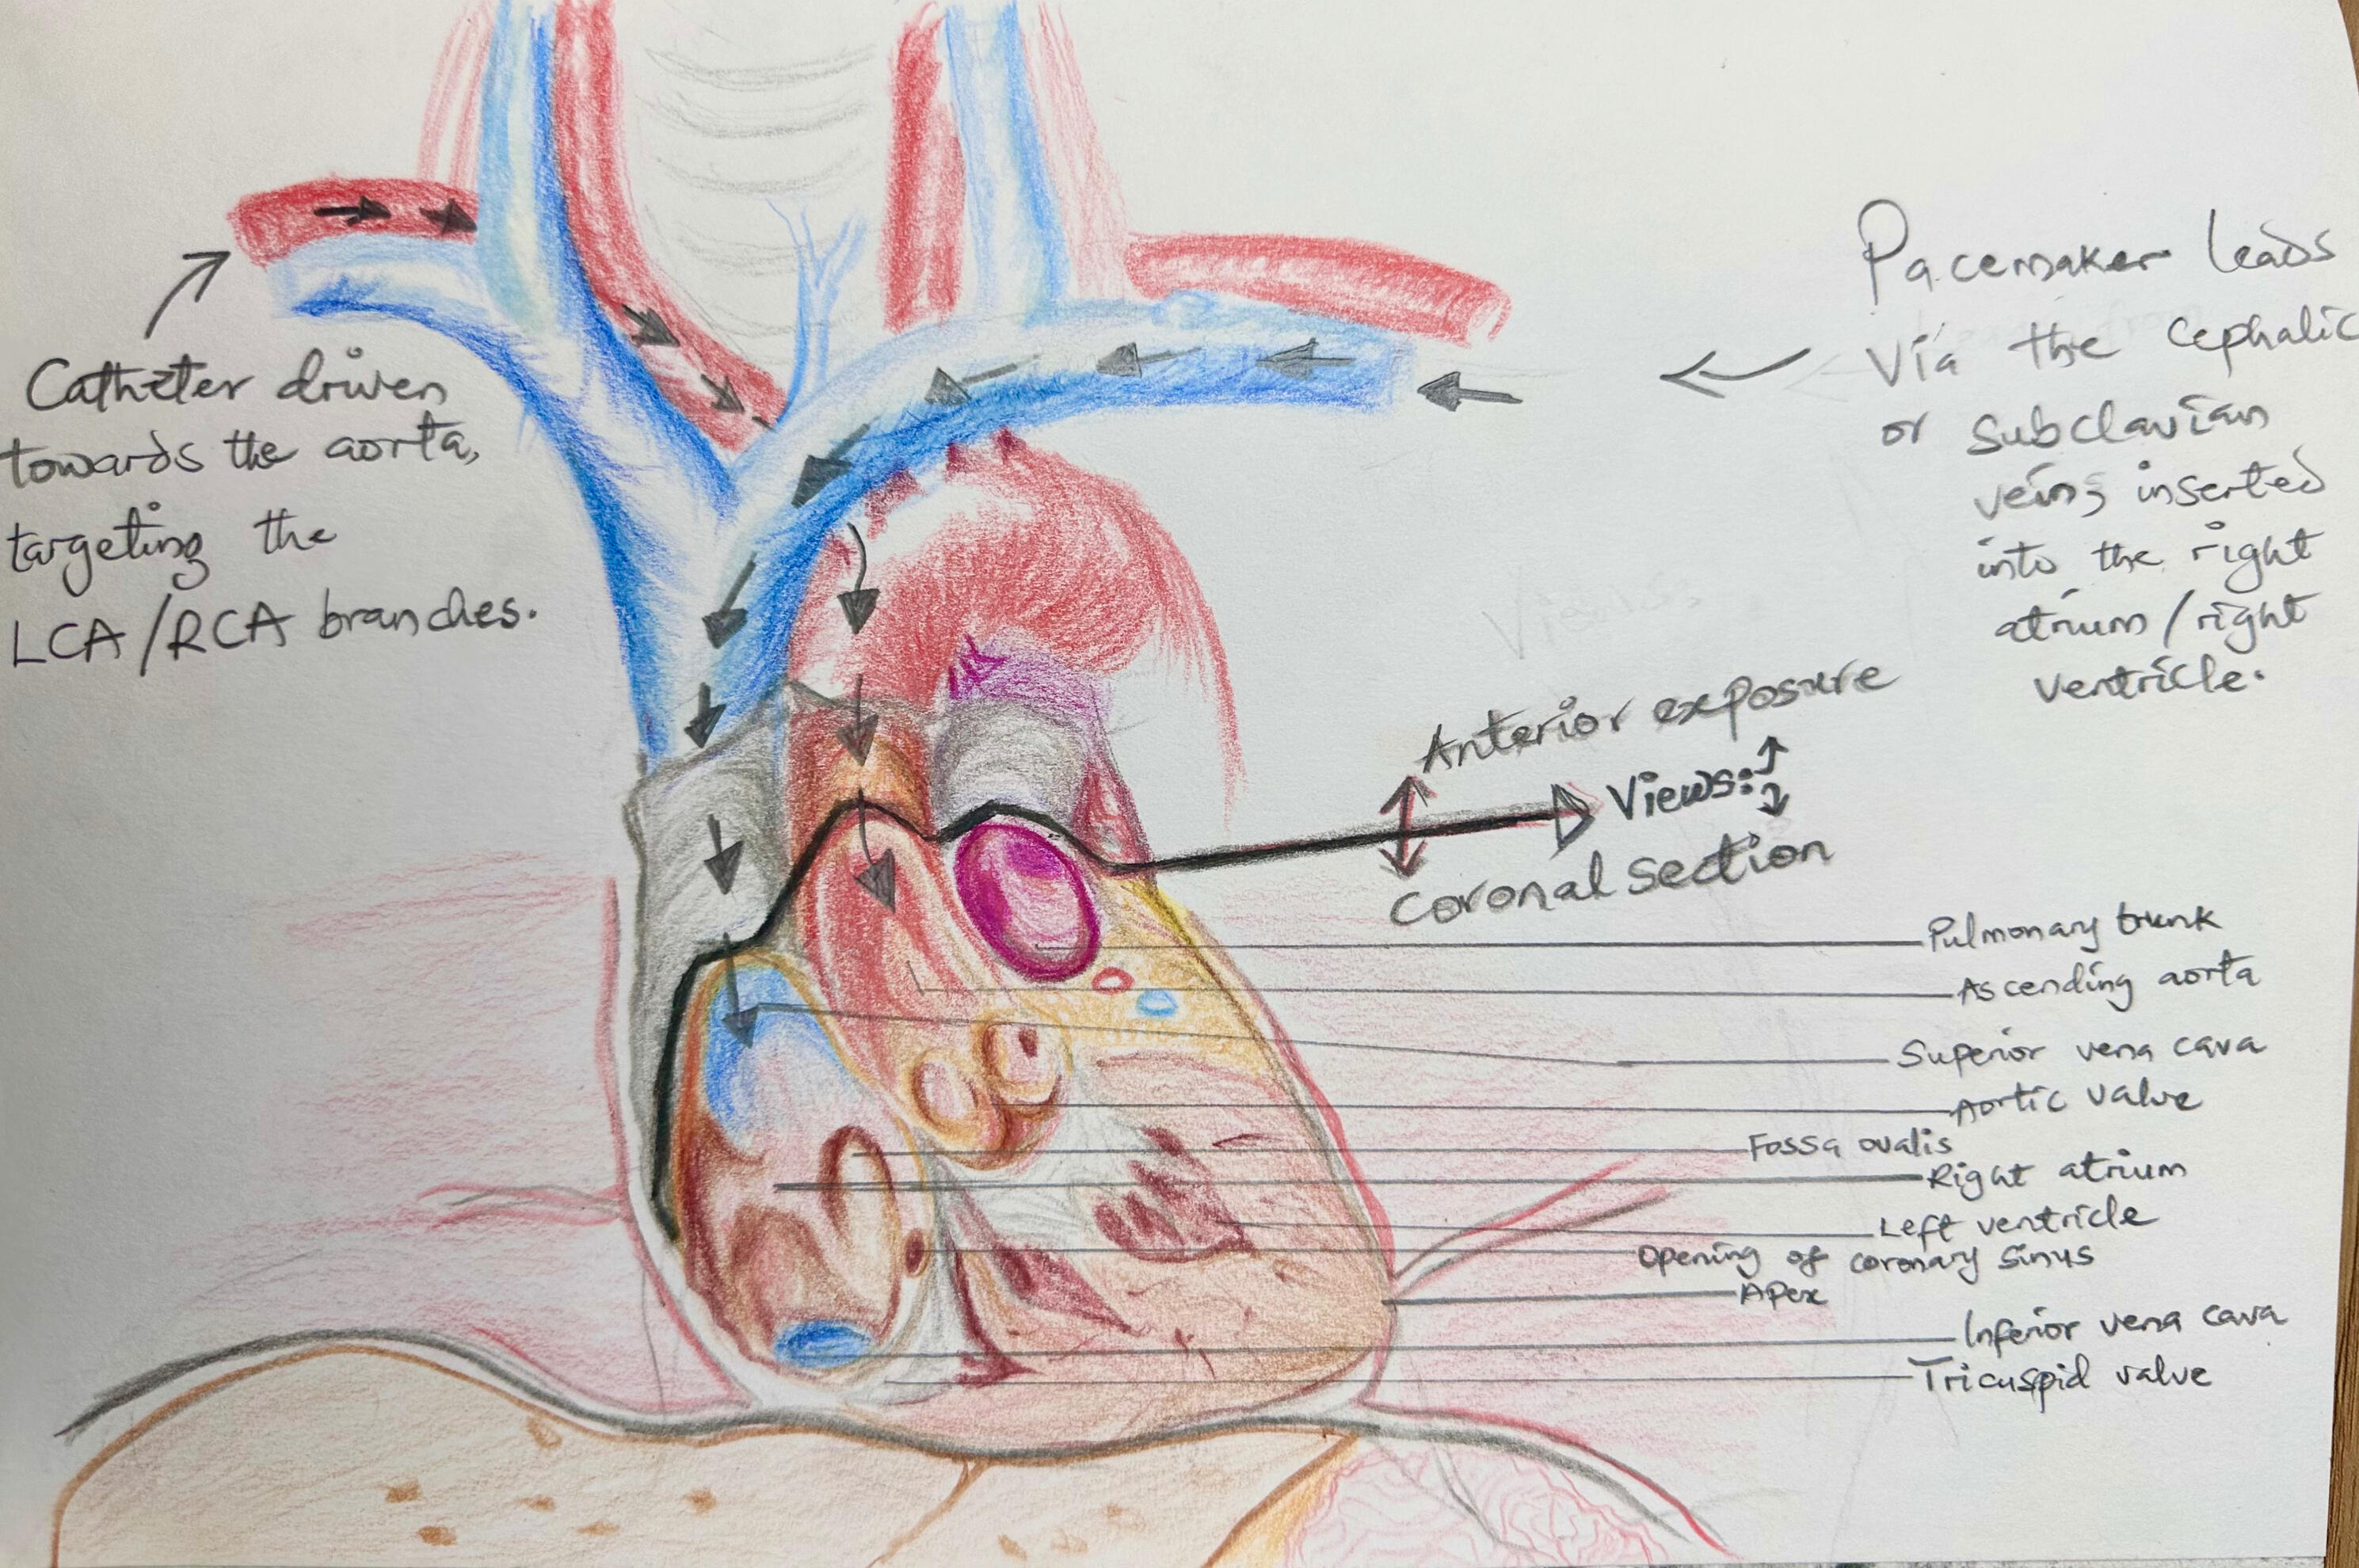 Catheter driven
towards the aorta,
targeting the
LCA/RCA branches.
Pacemaker leads
via the cephalic
or subclavian
veins inserted
into the right
atrium/right
ventricle.
Anterior exposure
Views:
Coronal section
Pulmonary trunk
Ascending aorta
Superior vena cava
Aortic valve
Fossa ovalis
Right atrium
Left ventricle
Opening of coronary sinus
Apex
Inferior vena cava
Tricuspid valve